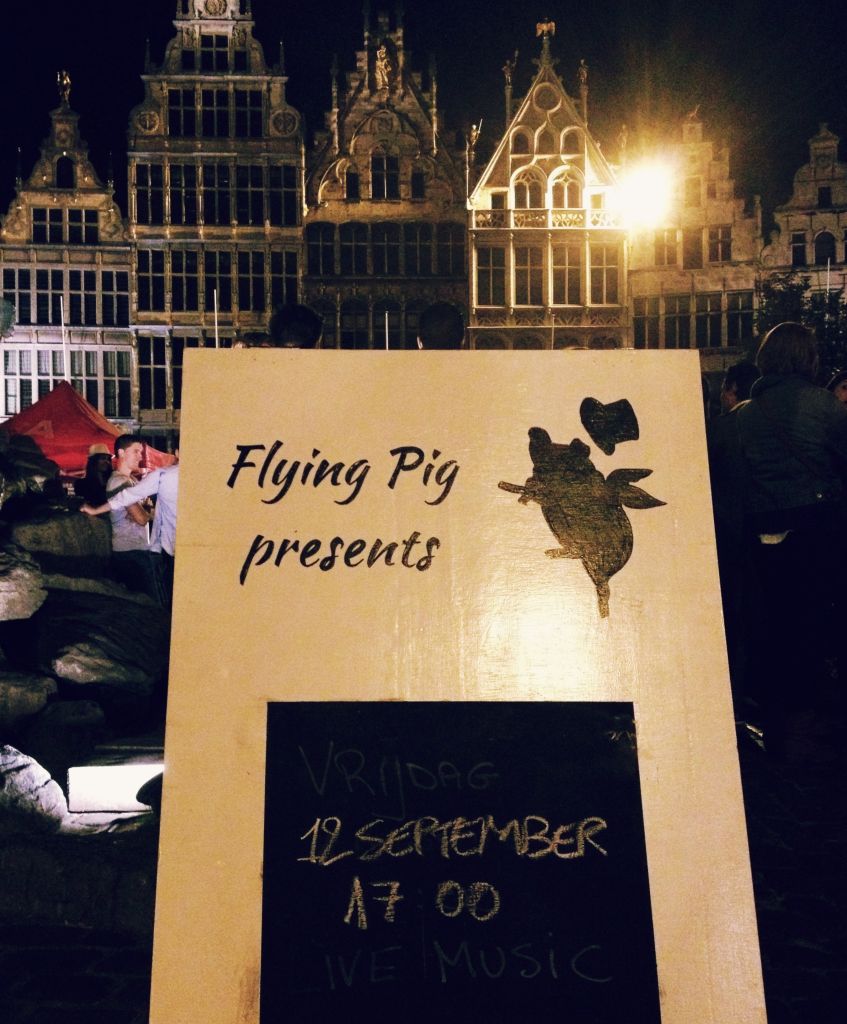 Flying Pig
presents
VRIJDAG
12 SEPTEMBER
17 00
LIVE MUSIC